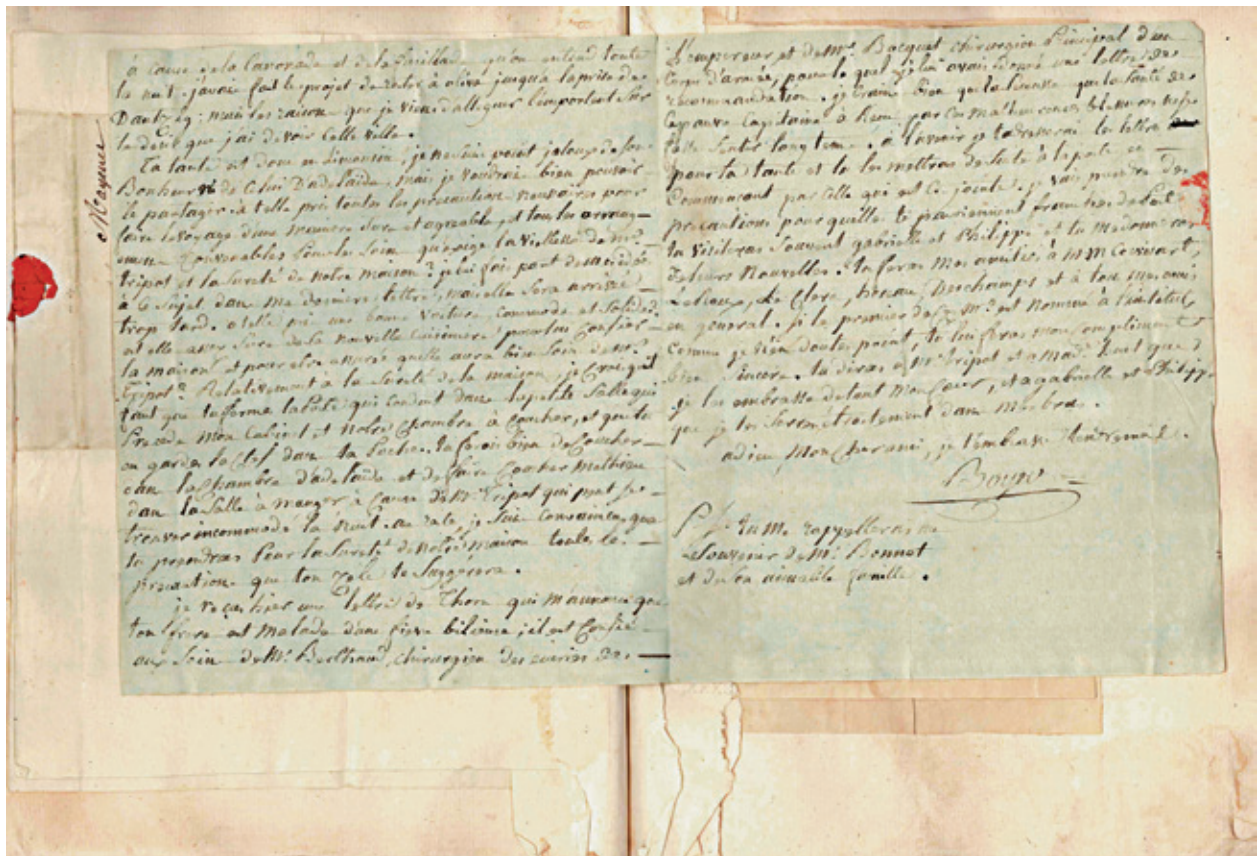 à cause de la Cavorade et de la qu'on entend toute
la nuit. j'avois fait le projet de rester à oliva jusqu'à la prise de
Dantzig: mais les raisons que je viens d'alleguer l'emportent sur
le desir que j'ai de voir cette ville.
Ta tante est donc en Limousin, je ne suis point jaloux de son
Bonheur de celui D'adelaïde, mais je voudrois bien pouvoir
le partager. a telle pris toutes les precautions necessaires pour
faire le voyage d'une maniere sure et agreable, et tous les arrang-
mens Convenables pour les soins qu'exige la vieillesse de Mr.
tripot et la sureté de notre maison? je lui fais part de mes idées
à ce sujet dans ma derniere lettre, mais elle sera arrivée
trop tard. a telle pris une bonne voiture commode et solide?
est elle assez sure de la nouvelle Cuisiniere pour lui Confier
la maison et pour etre assurée quelle aura bien soin de Mr.
Tripot? Relativement à la sureté de la maison, je crois qu'il
faut que tu ferme la Porte qui conduit dans la petite Salle qui
Precede mon Cabinet et notre Chambre à Coucher, et que tu
en gardes la Clef dans ta Poche. tu ferois bien de Coucher
dans la Chambre d'adelaïde et de faire Coucher
dans la Salle à manger à Cause de Mr. Tripot qui peut se
trouver incommodé la nuit. au reste, je suis convaincu que
tu prendras pour la sureté de notre maison toutes les
précautions que ton zèle te suggerera.
je reçus hier une lettre de Thorn qui m'annonce que
ton frere est malade d'une fievre bilieuse; il est Confié
aux soins de Mr. Berthand, chirurgien des ecuries de
L'empereur et de Mr. Bacquet chirurgien Principal d'un
Corps d'armée, pour le quel je lui avais donné une lettre de
recommandation. je crains bien que la secousse que la santé de
ce pauvre Capitaine à reçu par ces malheureuses blessures ne se
fasse sentir longtems. à l'avenir je t'adresserai les lettres
pour ta tante et tu les mettras de suite à la poste en
Commençant par celle qui est ci jointe. je vais prendre des
precautions pour quelles te parviennent franches de Port.
tu visiteras souvent gabrielle et Philippe et tu me donneras
de leurs nouvelles. tu feras mes amitiés à MM
Le Clerc, Deschamps et à tous mes amis
en general. si le premier de ces Mrs. est nommé à l'institut,
comme je n'en doute point, tu lui feras mon compliment
bien sincere. tu diras à Mr. tripot et a Made. que
je les embrasse de tout mon Coeur, et a gabrielle et Philippe
que je les serre étroitement dans mes bras.
adieu, mon cher ami, je t'embrasse tendrement.
Boyer
P.S. tu me rappelleras au
Souvenir de Mr. Bonnet
et de son aimable famille.